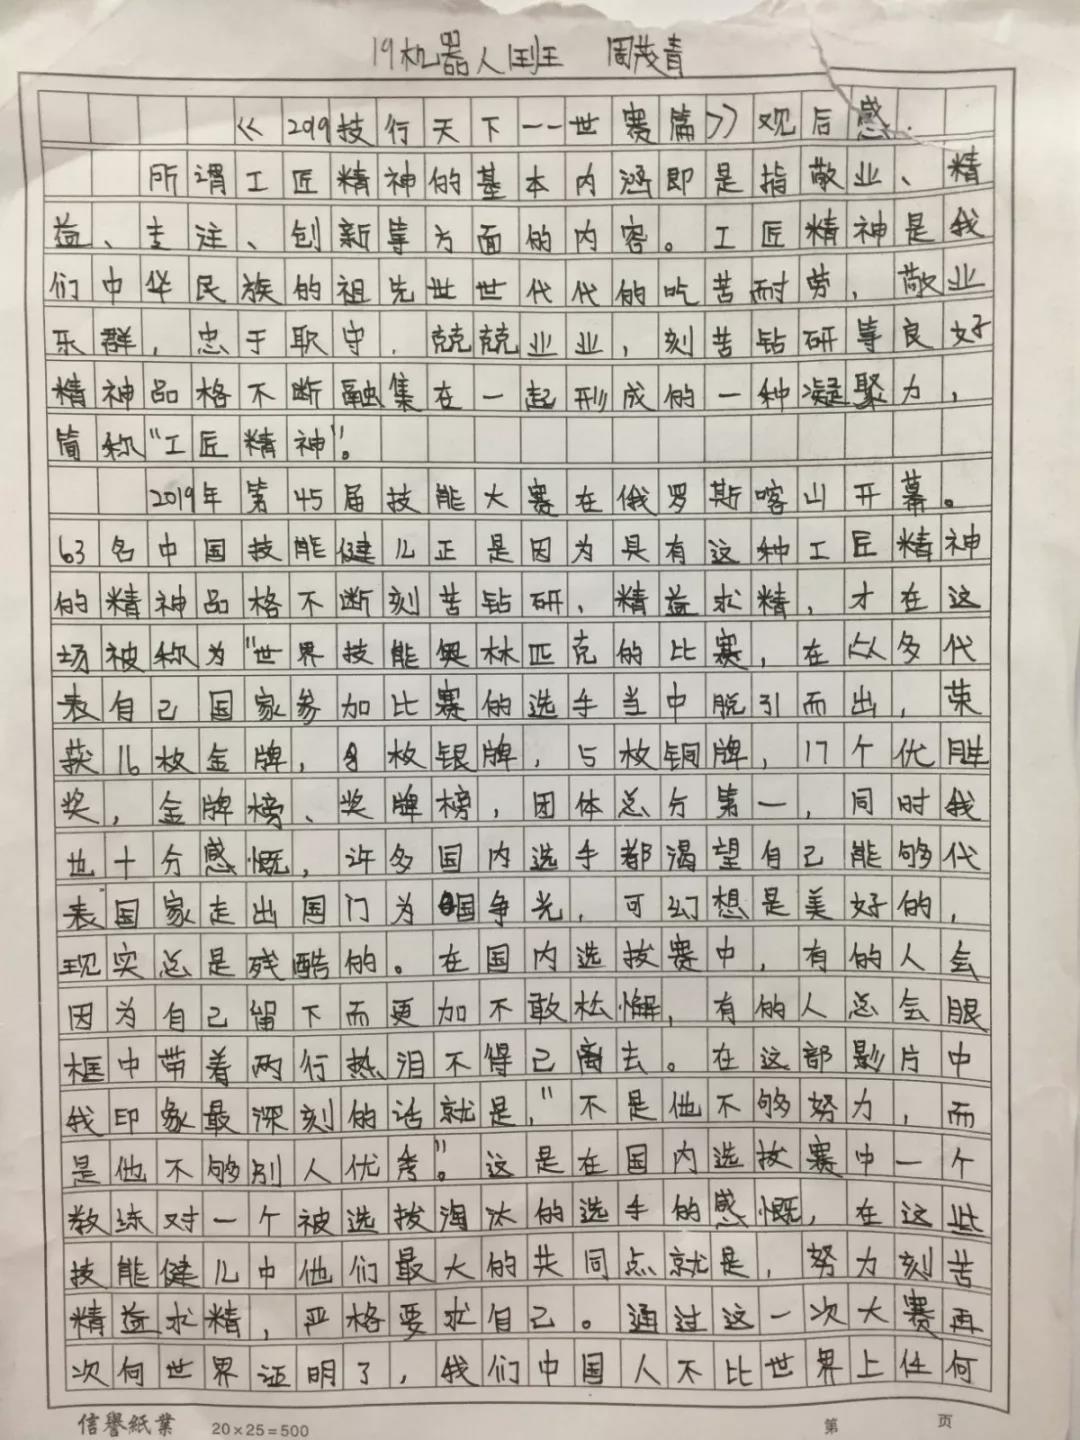 19机器人班 周茂青
《2019技行天下——世赛篇》观后感.
所谓工匠精神的基本内涵即是指敬业、精
益、专注、创新等方面的内容。工匠精神是我
们中华民族的祖先世世代代的吃苦耐劳，敬业
乐群，忠于职守，兢兢业业，刻苦钻研等良好
精神品格不断融集在一起形成的一种凝聚力，
简称"工匠精神"。
2019年第45届技能大赛在俄罗斯喀山开幕。
63名中国技能健儿正是因为具有这种工匠精神
的精神品格不断刻苦钻研、精益求精，才在这
场被称为"世界技能奥林匹克的比赛，在众多代
表自己国家参加比赛的选手当中脱引而出，荣
获16枚金牌，8枚银牌，5枚铜牌，17个优胜
奖，金牌榜、奖牌榜，团体总分第一，同时我
也十分感慨，许多国内选手都渴望自己能够代
表国家走出国门为国争光，可幻想是美好的，
现实总是残酷的。在国内选拔赛中，有的人会
因为自己留下而更加不敢松懈，有的人总会眼
框中带着两行热泪不得已离去。在这部影片中
我印象最深刻的话就是，"不是他不够努力，而
是他不够别人优秀"。这是在国内选拔赛中一个
教练对一个被选拔淘汰的选手的感慨，在这些
技能健儿中他们最大的共同点就是，努力刻苦
精益求精，严格要求自己。通过这一次大赛再
次向世界证明了，我们中国人不比世界上任何
信誉紙業 20×25=500 第 页